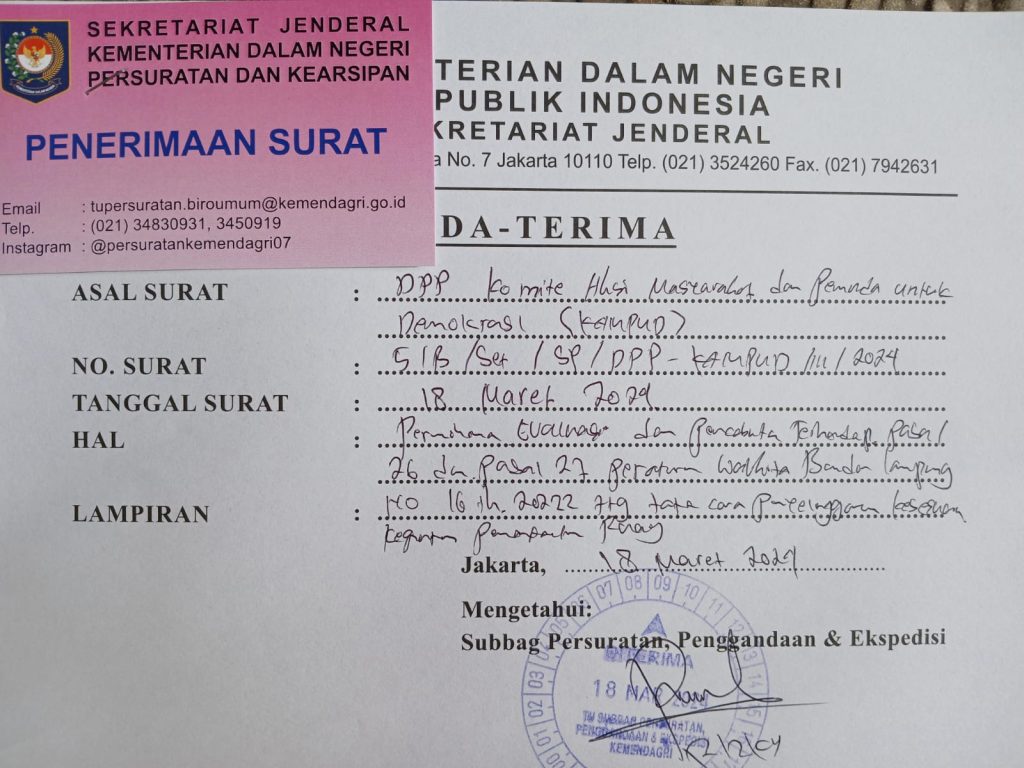 SEKRETARIAT JENDERAL
KEMENTERIAN DALAM NEGERI
PERSURATAN DAN KEARSIPAN
PENERIMAAN SURAT
Email : tupersuratan.biroumum@kemendagri.go.id
Telp. : (021) 34830931, 3450919
Instagram : @persuratankemendagri07
TERIAN DALAM NEGERI
PUBLIK INDONESIA
KRETARIAT JENDERAL
a No. 7 Jakarta 10110 Telp. (021) 3524260 Fax. (021) 7942631
DA-TERIMA
ASAL SURAT : DPP Komite Aksi Masyarakat dan Pemuda untuk
Demokrasi (KAMPUD)
NO. SURAT : 51B/Set/SP/DPP-KAMPUD/III/2024
TANGGAL SURAT : 18 Maret 2024
HAL : Evaluasi dan Terhadap Pasal
26 dan Pasal 27 Peraturan Walikota Bandar Lampung
LAMPIRAN : NO 16 th. 20222 ttg tata cara
Ruang
Jakarta, 18 Maret 2024
Mengetahui:
Subbag Persuratan, Penggandaan & Ekspedisi
01 02 03 04 05 06 07 08 09 10 11 12 13 14 15
DITERIMA
18 MAR 2024
TU SUBBAG PERSURATAN,
PENGGANDAAN & EKSPEDISI
KEMENDAGRI